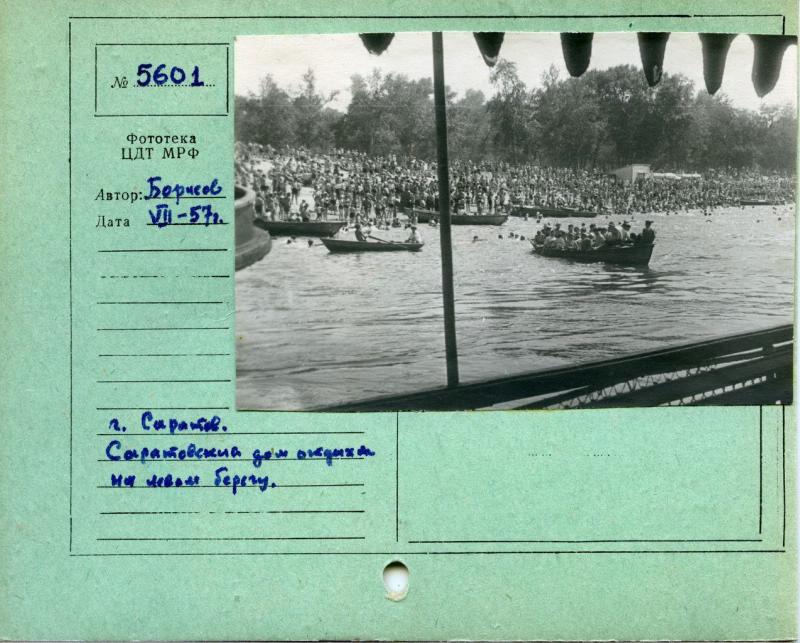 № 5601
Фототека
ЦДТ МРФ
Автор: Борисов
Дата VII-57г.
г. Саратов.
Саратовский дом отдыха
на левом берегу.